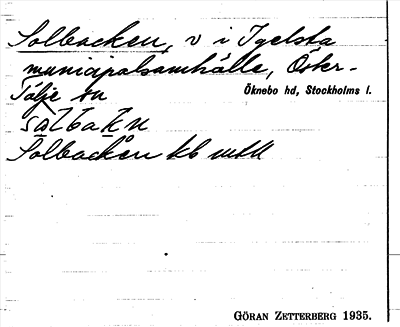 Solbacken, v i Igelsta
municipalsamhälle, Öster-
Tälje sn Öknebo hd, Stockholms l.
Solbacken kb
GÖRAN ZETTERBERG 1935.